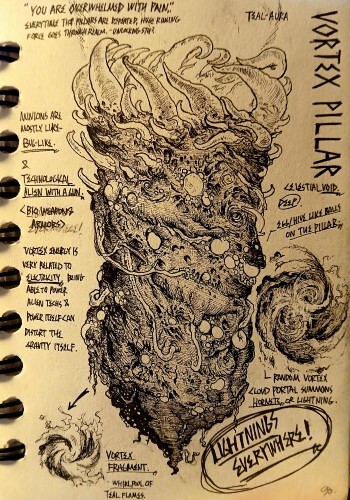 "YOU ARE OVERWHELMED WITH PAIN."
EVERYTIME THE PILLARS ARE DEFEATED, HUGE RUNNING
FORCE GOES THROUGH REALM.
TEAL-AURA
VORTEX PILLAR
MINIONS ARE
MOSTLY LIKE
BUG-LIKE.
&
TECHNOLOGICAL
ALIEN WITH A GUN.
<BIO WEAPONS
ARMORS>
CELESTIAL VOID
DEEP
EGG/HIVE LIKE BALLS
ON THE PILLAR.
VORTEX ENERGY IS
VERY RELATED TO
ELECTRICITY, BEING
ABLE TO POWER
ALIEN TECHS &
POWER ITSELF CAN
DISTORT THE
GRAVITY ITSELF.
RANDOM VORTEX
CLOUD PORTAL SUMMONS
HORNETS, OR LIGHTNING.
LIGHTNINGS
EVERYWHERE!
VORTEX
FRAGMENT.
WHIRLPOOL OF
TEAL FLAMES.